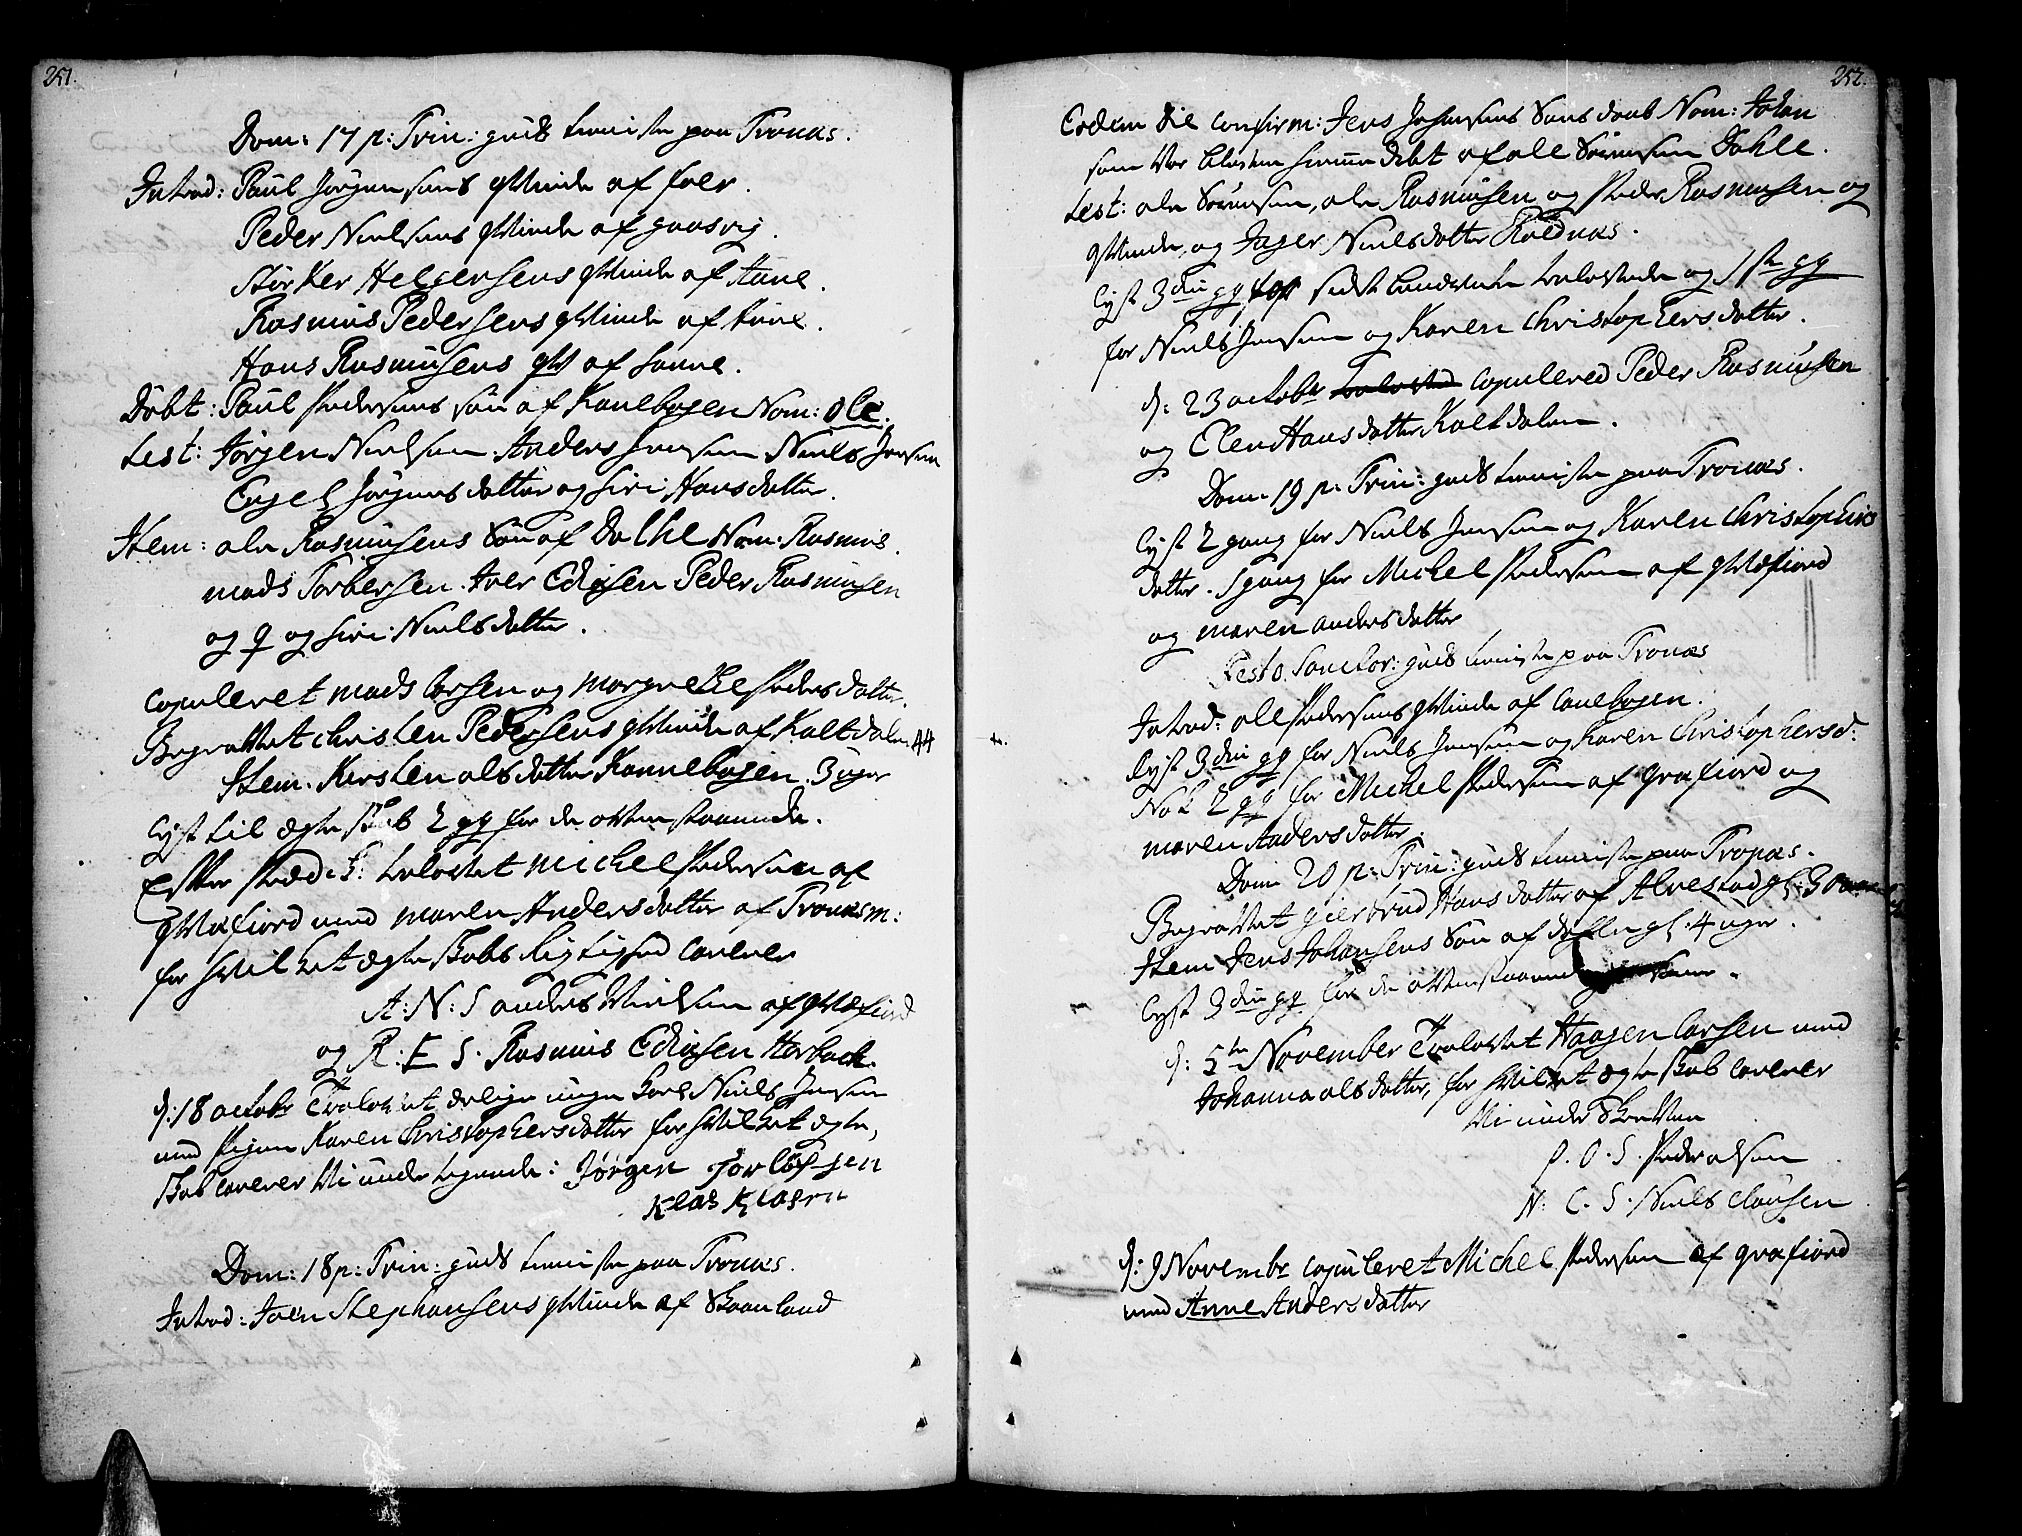 251.
Dom: 17 p: Trin: guds tieniste paa Tronæs.
Introd: Paul Jørgensens qvinde af
Peder Nielsens qvinde af gaasvig.
Størker Helgersens qvinde af
Rasmus Pedersens qvinde af
Hans Rasmusens qv af sanne.
Døbt: Paul Pedersens søn af Kanebogen Nom: Ole.
test: Jørgen Nielsen Anders Jensen Niels Jensen
Engel Jørgensdatter og siri Hansdatter.
Item: ole Rasmusens Søn af Dalhe Nom: Rasmus.
mads Torbersen. Iver Edisen Peder Rasmusen
og q og siri Nielsdatter.
Copuleret mads larsen og margrethe Pedersdatter.
Begravet christen Pedersens qvinde af Kaltdalen 44
Item. Kirsten olsdatter Kannebogen. 3 uger
lyst til ægteskab 2 gg for de ovenstaaende.
trolovet michel Pedersen af
qvæfiord med maren Andersdatter af Tronæs m:
for hvilket ægteskabs Rigtighed caverer
A: N: S anders Nielsen af qvæfiord
og R: E S. Rasmus Edisen Horback.
d: 18 octobr Trolovet ærlige unge karl Niels Jensen
med Pigen Karen Christophersdatter for hvilket ægte,
skab caverer Vi under tegnende: Jørgen Torlöfsen
Klas Klasen
Dom: 18 p: Trin: guds tieniste paa Tronæs.
Introd: Joen Stephansens qvinde af Skaanland
252.
Eodem die confirm: Jens Johansens Søns daab Nom: Johan
som var bleven hiemme døbt af ole Sørensen Dahle.
test: ole Sørensen, ole Rasmusen og Peder Rasmusen og
qvinde, og Inger Nielsdatter
lyst 3die gg for sidst trolovede og 1ste gg
for Niels Jensen og Karen Christophersdatter.
d: 23 octobr copulered Peder Rasmusen
og Elen Hansdatter Kaltdalen.
Dom. 19 p: Trin: guds tieniste paa Tronæs.
lyst 2 gang for Niels Jensen og Karen Christophers
datter. 1 gang for Michel Pedersen af qvæfiord
og maren andersdatter
Festo Sanctor: guds tieniste paa Tronæs
Introd: ole Pedersens qvinde af Canebogen.
Lyst 3die gg for Niels Jensen og Karen Christophersd:
Nok 2 gg for Michel Pedersen af qvæfiord og
maren Andersdatter.
Dom 20 p: Trin: guds tieniste paa Tronæs.
Begravet giertrud Hansdatter af Alvestad gl: 30
Item Jens Johansens Søn af gl. 4 uger.
lyst 3die gg for de ovenstaaende
d: 5te November Trolovet Haagen larsen med
Johanna olsdatter, for hvilket ægteskab caverer
Vi under skreven
P. O. S. Peder olsen
N: C. S. Niels Clausen
d: 9 Novembr copuleret Michel Pedersen af qvæfiord
med Anne Andersdatter